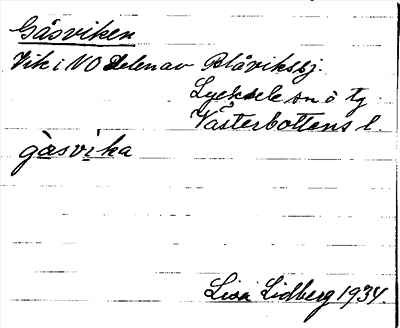 Gåsviken
Vik i NO delen av Blåviksbj.
Lycksele sn o tg
Västerbottens l.
gåsvika
Lisa Lidberg 1934.